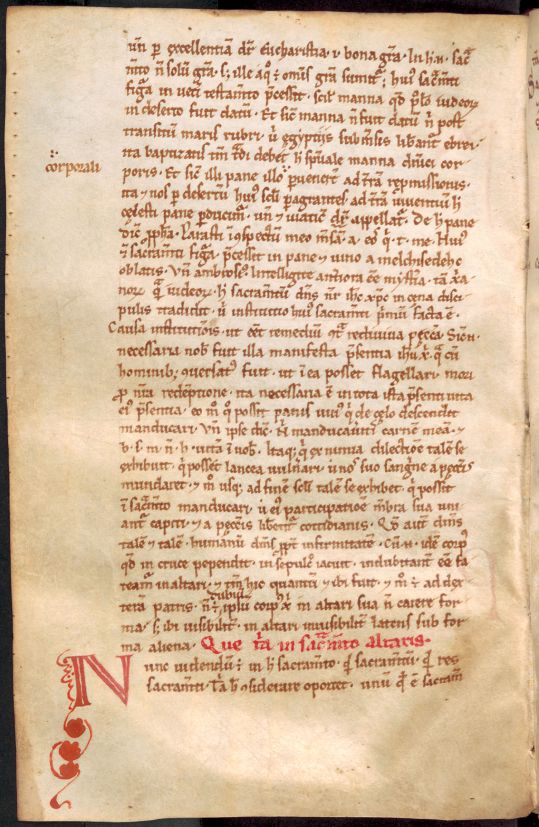 uñ p excellentiã dr̃ eucharistia. i. bona grã. In h.n. sac̃
m̃to ñ solũ grã. s; ille a q̊ ẽ omĩs grã sumit᷑; hui᷑ sac̃mti
figa in uet̃i testam̃to p̃cessit. scił manna qđ pł̃o iudeoꝝ
in deserto fuit datũ. Et sic̃ manna ñ fuit datũ ñ post
transitũ maris rubri ⁊ egyptijs submsis libant᷑ ebrei
ita baptizatis tm̃ debet h̃ spũale manna
corporali
poris. Et sic̃ illi pane illo puener̃t ad trã repmissionis.
ita ⁊ nos p desertũ hui᷑ sc̃li pagrantes ad trã uiuentiũ h̃
celesti pane pducim᷑. uñ ⁊ uiaticũ dr̃ appellat᷑. De h̃ pane
dic̃ pph̃a. Parasti ĩ ɔspectu meo m̃sã. a. eos q̇. t. me. Hui᷑
ẽ sacram̃ti figa p̃cessit in pane ⁊ uino a melchisedech
oblatis. Uñ ambrosi᷑. Intelligite antiqiora ẽe mist̃ia xp̃a
noꝝ quã iudeoꝝ. h̃ sacram̃tũ dñs nr̃ ih̃c xp̃c in cena disci
pulis tradidit. ⁊ institutio hui᷑ sacram̃ti p̃mũ facta ẽ.
Causa institutiõis. ut eẽt remediũ ɔt᷑ rediuiua pecc̃a. Sicut.
necessaria nob̃ fuit illa manifesta p̃sentia ih̃u x̃. q̃ cũ
hominib; ɔuersat᷑ fuit. ut ĩ ea posset flagellari. mori
p nr̃a redẽptione. ita necessaria ẽ in tota ista p̃senti uita
ei᷑ p̃sentia. eo m̊ q̊ possit panis uiu᷑ q̇ de celo descendit
manducari. Uñ ipse dic̃. N̾ manducau̾iti᷑ carnẽ meã. ⁊
b. s. m. ñ. h. uitã ĩ uob̃. Itaq; q̇ ex nimia dilectiõe talẽ se
exhibuit. q̇ posset lancea uuln̾ari. ⁊ nos suo sangñe a pecc̃is
mundaret. ⁊ m̊ usq; ad finẽ sc̃li talẽ se exhibet. q̇ possit
ĩ sac̃m̃to manducari. ⁊ ei᷑ participatiõe m̃bra sua uni
ant᷑ capiti. ⁊ a pecc̃is liberent᷑ cottidianis. Qđ aut̃ dicim᷑
talẽ ⁊ talẽ. humanũ dicim᷑ ppt̃ infirmitatẽ. Cũ.n. idẽ corp᷑
qđ in cruce pependit. in sepulc̃o iacuit. indubitant̾ ẽe fa
team᷑ in altari. ⁊ tm̃ hic quantũ ⁊ ibi fuit. ⁊ m̊ ẽ ad dex
teram patris. ñ ẽ ipsũ corp᷑ x̃i in altari sua ñ carere for
ma. s; ibi uisibilit̾. in altari inuisibilit̾ latens sub for
ma aliena. Que trĩa in sac̃m̃to altaris.
Nunc uidendũ ẽ in h̃ sacram̃to. q̇đ sacram̃tũ. q̇đ res
sacram̃ti. Trĩa h̃ ɔsiderare oportet. unũ q̇đ ẽ sacram̃